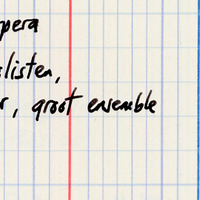 pera
listen,
r, groot ensemble